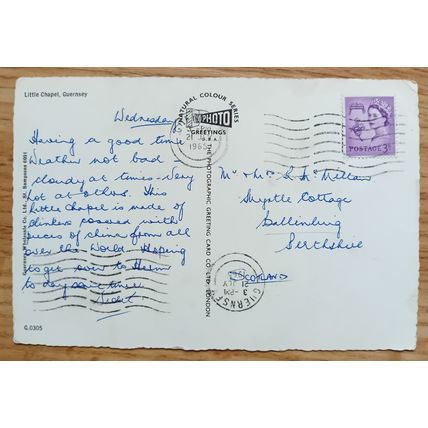 Little Chapel, Guernsey
Wednesday
Having a good time
Weather not bad
cloudy at times - very
hot at others. This
little chapel is made of
clinkers covered with
pieces of china from all
over the World. Hoping
to get over to Herm
to day some time
G.0305
NATURAL COLOUR SERIES
PHOTO
GREETINGS
THE PHOTOGRAPHIC GREETING CARD CO. LTD., LONDON
1965
POSTAGE 3D
Mr & Mrs McMillan
Myrtle Cottage
Ballinluig
Perthshire
SCOTLAND
GUERNSEY
3 - PM
21 JLY